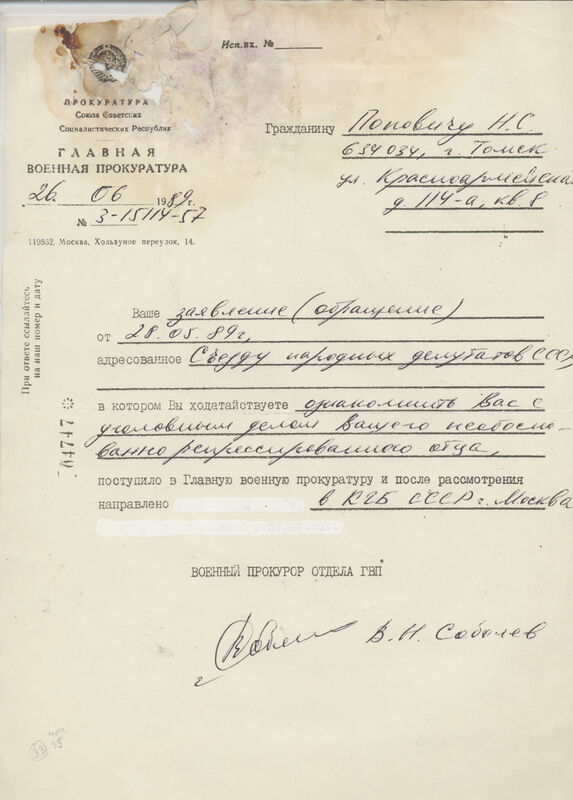 Исп.вх. №
ПРОКУРАТУРА
Союза Советских
Социалистических Республик
ГЛАВНАЯ
ВОЕННАЯ ПРОКУРАТУРА
26. 06 1989г.
№ 3-15114-57
119852, Москва, Хользунов переулок, 14.
Гражданину Поповичу Н.С.
634034, г. Томск
ул. Красноармейская
д. 114-а, кв. 8
При ответе ссылайтесь
на наш номер и дату
04747
Ваше заявление (обращение)
от 28.05.89г,
адресованное Съезду народных депутатов СССР,
в котором Вы ходатайствуете ознакомить Вас с
уголовным делом Вашего необосно-
ванно репрессированного отца,
поступило в Главную военную прокуратуру и после рассмотрения
направлено в КГБ СССР г. Москва
ВОЕННЫЙ ПРОКУРОР ОТДЕЛА ГВП
В.Н. Соболев
33